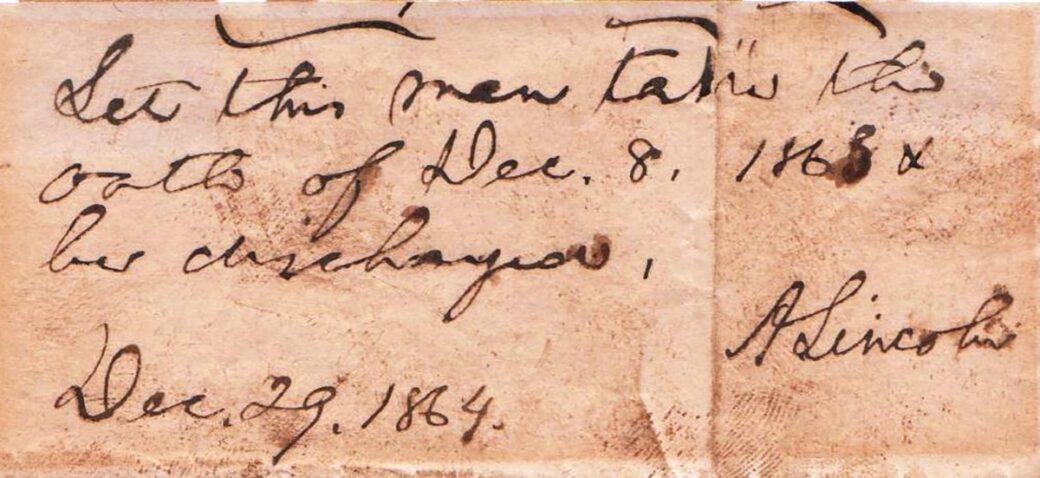 Let this man take the
oath of Dec. 8. 1863 &
be discharged.
A Lincoln
Dec. 29. 1864.